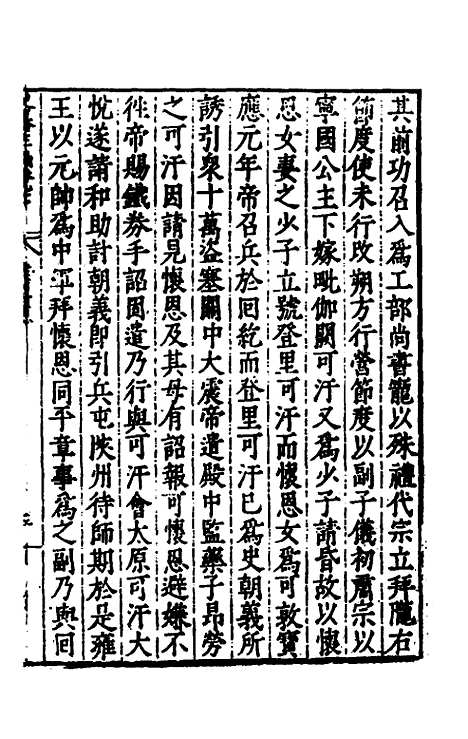 其前功召入爲工部尚書寵以殊禮代宗立拜隴右
節度使未行改朔方行營節度以副子儀初肅宗以
寧國公主下嫁毗伽闕可汗又爲少子請昏故以懷
恩女妻之少子立號登里可汗而懷恩女爲可敦寶
應元年帝召兵於回紇而登里可汗已爲史朝義所
誘引衆十萬盜塞關中大震帝遣殿中監藥子昻勞
之可汗因請見懷恩及其母有詔報可懷恩避嫌不
往帝賜鐵券手詔固遣乃行與可汗會太原可汗大
悅遂請和助討朝義即引兵屯陝州待師期於是雍
王以元帥爲中軍拜懷恩同平章事爲之副乃與回